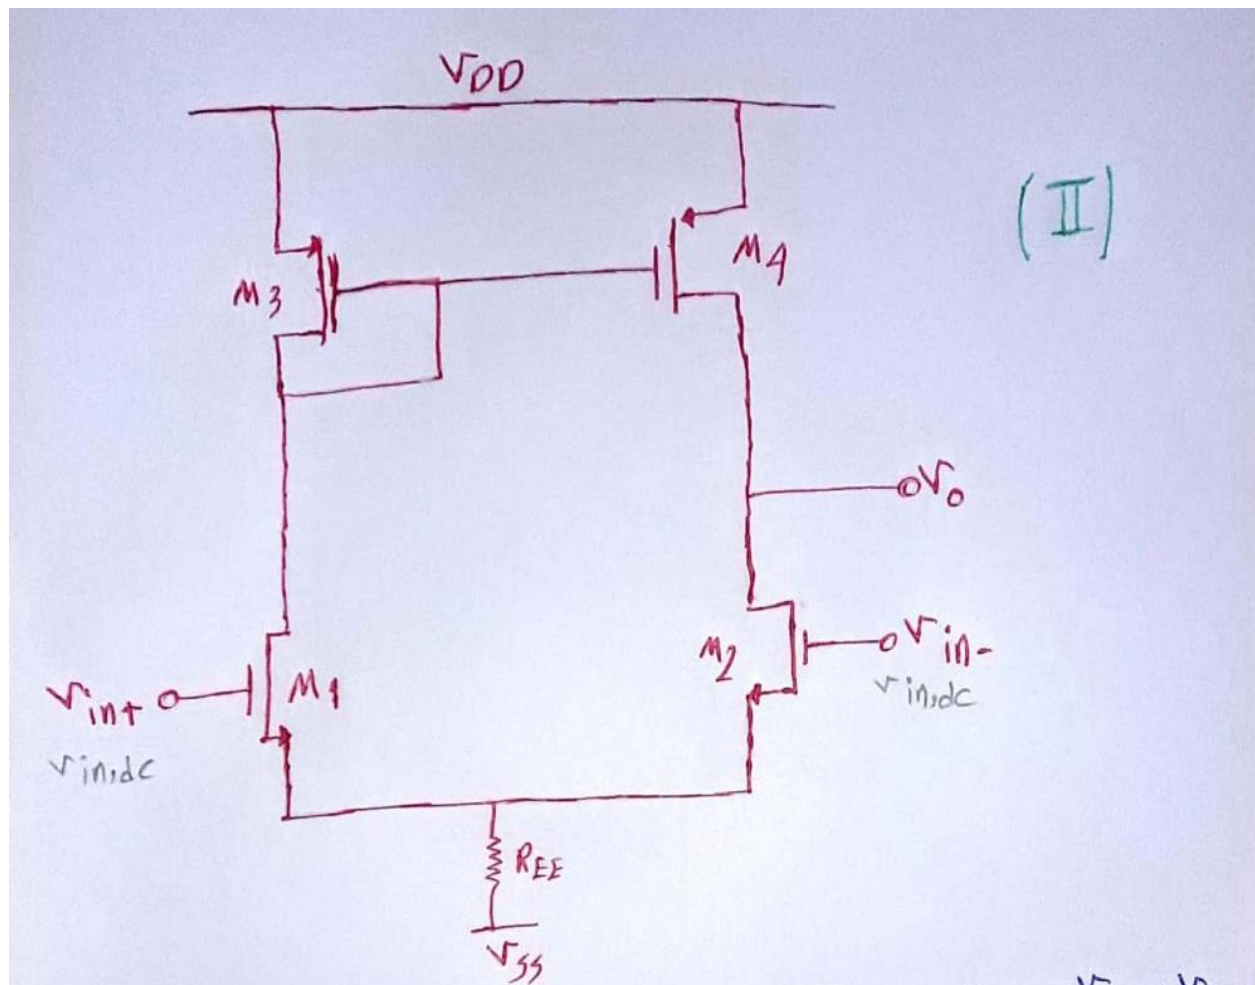 VDD
(II)
M3
M4
Vo
M2
Vin-
vin,dc
Vin+
M1
vin,dc
REE
VSS